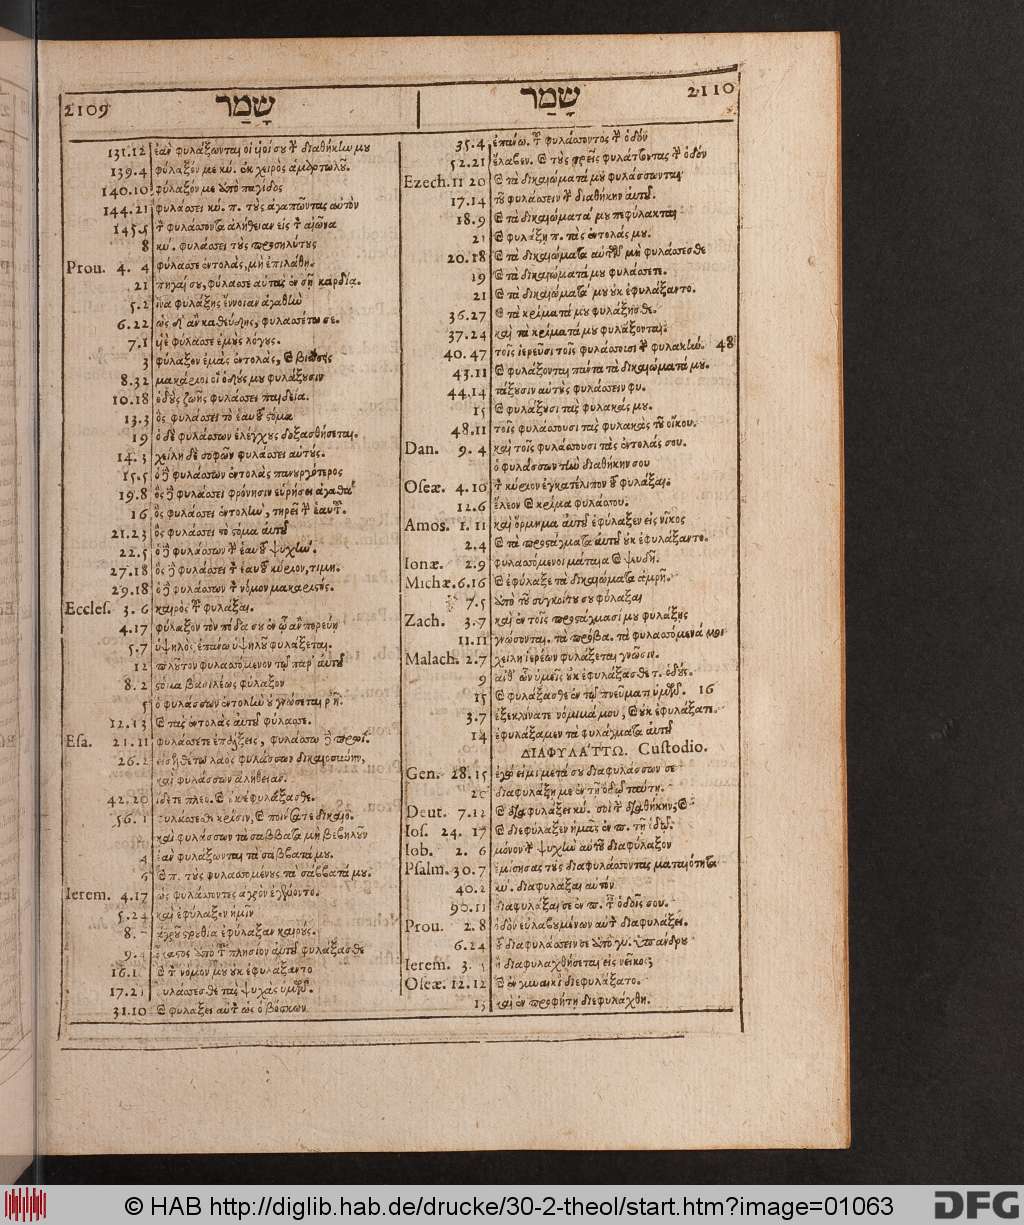 2109 שָׁמַר
131.12 ἐὰν φυλάξωνται οἱ υἱοί σου τ διαθήκην μου
139.4 φύλαξόν με κύ. ἐκ χειρὸς ἁμαρτωλοῦ.
140.10 φύλαξόν με ἀπὸ παγίδος
144.21 φυλάσσει κύ. π. τοὺς ἀγαπῶντας αὐτὸν
145.5 τ φυλάσσοντα ἀλήθειαν εἰς τ αἰῶνα
8 κύ. φυλάσσει τοὺς προσηλύτους
Prou. 4. 4 φύλασσε ἐντολάς, μὴ ἐπιλάθῃ.
21 πηγαί σου, φύλασσε αὐτὰς ἐν σῇ καρδίᾳ.
5.2 ἵνα φυλάξῃς ἔννοιαν ἀγαθὴν
6.22 ὡς δ' ἂν καθεύδῃς, φυλασσέτω σε.
7.1 υἱὲ φύλασσε ἐμοὺς λόγους.
3 φύλαξον ἐμὰς ἐντολάς, καὶ βιώσεις
8.32 μακάριοι οἳ ὁδούς μου φυλάξουσιν
10.18 ὁδοὺς ζωῆς φυλάσσει παιδεία.
13.3 ὃς φυλάσσει τὸ ἑαυτοῦ στόμα
19 ὁ δὲ φυλάσσων ἐλέγχους δοξασθήσεται.
14.3 χείλη δὲ σοφῶν φυλάσσει αὐτούς.
15.5 ὁ δὲ φυλάσσων ἐντολὰς πανουργότερος
19.8 ὃς δὲ φυλάσσει φρόνησιν εὑρήσει ἀγαθά
16 ὃς φυλάσσει ἐντολὴν, τηρεῖ τ ἑαυτ.
21.23 ὃς φυλάσσει τὸ στόμα αὐτοῦ
22.5 ὁ δὲ φυλάσσων τ ἑαυτοῦ ψυχὴν.
27.18 ὃς δὲ φυλάσσει τ ἑαυτοῦ κύριον, τιμη.
29.18 ὁ δὲ φυλάσσων τ νόμον μακαριστός.
Eccles. 3. 6 καιρὸς τοῦ φυλάξαι.
4.17 φύλαξον τὸν πόδα σου ἐν ᾧ ἂν πορεύῃ
5.7 ὑψηλὸς ἐπάνω ὑψηλοῦ φυλάξεται.
12 πλοῦτον φυλασσόμενον τῷ παρ' αὐτοῦ
8.2 στόμα βασιλέως φύλαξον
5 ὁ φυλάσσων ἐντολὴν οὐ γνώσεται ῥῆ.
12.13 καὶ τὰς ἐντολὰς αὐτοῦ φύλασσε.
Esa. 21.11 φυλάσσετε ἐπάλξεις, φυλάσσω τ πρωΐ.
26.2 εἰσελθέτω λαὸς φυλάσσων δικαιοσύνην,
καὶ φυλάσσων ἀλήθειαν.
42.20 ἴδετε πλεο. καὶ οὐκ ἐφυλάξασθε.
56.1 φυλάσσεσθε κρίσιν, καὶ ποιήσατε δικαιο.
καὶ φυλάσσων τὰ σάββατα μὴ βεβηλοῦν
4 ἐὰν φυλάξωνται τὰ σάββατά μου.
6 καὶ π. τοὺς φυλασσομένους τὰ σάββατά μου.
Ierem. 4.17 ὡς φυλάσσοντες ἀγρὸν ἐγένοντο.
5.24 καὶ ἐφύλαξεν ἡμῖν
8. ἀγροῦ στρουθία ἐφύλαξαν καιρούς.
9. ἕκαστος ἀπὸ τοῦ πλησίον αὐτοῦ φυλάξασθε
16.1 καὶ τ νόμον μου οὐκ ἐφυλάξαντο
17.2 φυλάσσεσθε τὰς ψυχὰς ὑμῶν.
31.10 καὶ φυλάξει αὐτ ὡς ὁ βόσκων
שָׁמַר 2110
35.4 ἐπάνω. τοῦ φυλάσσοντος τ ὁδόν
52.21 ἔλαβεν. καὶ τοὺς τρεῖς φυλάττοντας τ ὁδόν
Ezech. 11 20 καὶ τὰ δικαιώματά μου φυλάσσωνται
17.14 τοῦ φυλάσσειν τ διαθήκην αὐτοῦ.
18.9 καὶ τὰ δικαιώματά μου πεφύλακται
21 καὶ φυλάξῃ π. τὰς ἐντολάς μου.
20.18 καὶ τὰ δικαιώματα αὐτῶν μὴ φυλάσσεσθε
19 καὶ τὰ δικαιώματά μου φυλάσσετε.
21 καὶ τὰ δικαιώματά μου οὐκ ἐφυλάξαντο.
36.27 καὶ τὰ κρίματά μου φυλάξησθε.
37.24 καὶ τὰ κρίματά μου φυλάξονται.
40.47 τοῖς ἱερεῦσι τοῖς φυλάσσουσι τ φυλακὴν. 48
43.11 καὶ φυλάξονται πάντα τὰ δικαιώματά μου.
44.14 τάξουσιν αὐτοὺς φυλάσσειν φυ.
15 καὶ φυλάξουσι τὰς φυλακάς μου.
48.11 τοῖς φυλάσσουσι τὰς φυλακὰς τοῦ οἴκου.
Dan. 9. 4 καὶ τοῖς φυλάσσουσι τὰς ἐντολάς σου.
ὁ φυλάσσων τὴν διαθήκην σου
Oseæ. 4.10 τ κύριον ἐγκατέλιπον τοῦ φυλάξαι.
12.6 ἔλεον καὶ κρίμα φυλάσσου.
Amos. 1.11 καὶ ὅρμημα αὐτοῦ ἐφύλαξεν εἰς νῖκος
2.4 καὶ τὰ προστάγματα αὐτοῦ οὐκ ἐφυλάξαντο.
Ionæ. 2.9 φυλασσόμενοι μάταια καὶ ψευδῆ.
Michæ. 6.16 καὶ ἐφύλαξε τὰ δικαιώματα ἀμρῆ.
7.5 ἀπὸ τοῦ συγκοίτου σου φύλαξαι
Zach. 3.7 καὶ ἐν τοῖς προστάγμασί μου φυλάξῃς
11.11 γνώσονται. τὰ πρόβα. τὰ φυλασσόμενά μοι
Malach. 2.7 χείλη ἱερέων φυλάξεται γνῶσιν.
9 ἀνθ' ὧν ὑμεῖς οὐκ ἐφυλάξασθε τ. ὁδούς.
15 καὶ φυλάξασθε ἐν τῷ πνεύματι ὑμῶν. 16
3.7 ἐξεκλίνατε νόμιμά μου, καὶ οὐκ ἐφυλάξατε.
14 ἐφυλάξαμεν τὰ φυλάγματα αὐτοῦ
ΔΙΑΦΥΛΑ'ΤΤΩ. Custodio.
Gen. 28.15 ἐγώ εἰμι μετά σου διαφυλάσσων σε
20 διαφυλάξῃ με ἐν τῇ ὁδῷ ταύτῃ.
Deut. 7.12 καὶ διαφυλάξει κύ. σοὶ τ διαθήκην, καὶ
Ios. 24. 17 καὶ διεφύλαξεν ἡμᾶς ἐν π. τῇ ὁδῷ.
Iob. 2. 6 μόνον τ ψυχὴν αὐτοῦ διαφύλαξον
Psalm. 30.7 ἐμίσησας τοὺς διαφυλάσσοντας ματαιότητα
40.2 κύ. διαφυλάξαι αὐτὸν
90.11 διαφυλάξαι σε ἐν π. τ ὁδοῖς σου.
Prou. 2.8 ὁδὸν εὐλαβουμένων αὐτ διαφυλάξει.
6.24 τοῦ διαφυλάσσειν σε ἀπὸ γυ. ὑπάνδρου
Ierem. 3. ἢ διαφυλαχθήσεται εἰς νεῖκος;
Oseæ. 12.12 καὶ ἐν γυναικὶ διεφυλάξατο.
13 καὶ ἐν προφήτῃ διεφυλάχθη.
© HAB http://diglib.hab.de/drucke/30-2-theol/start.htm?image=01063
DFG